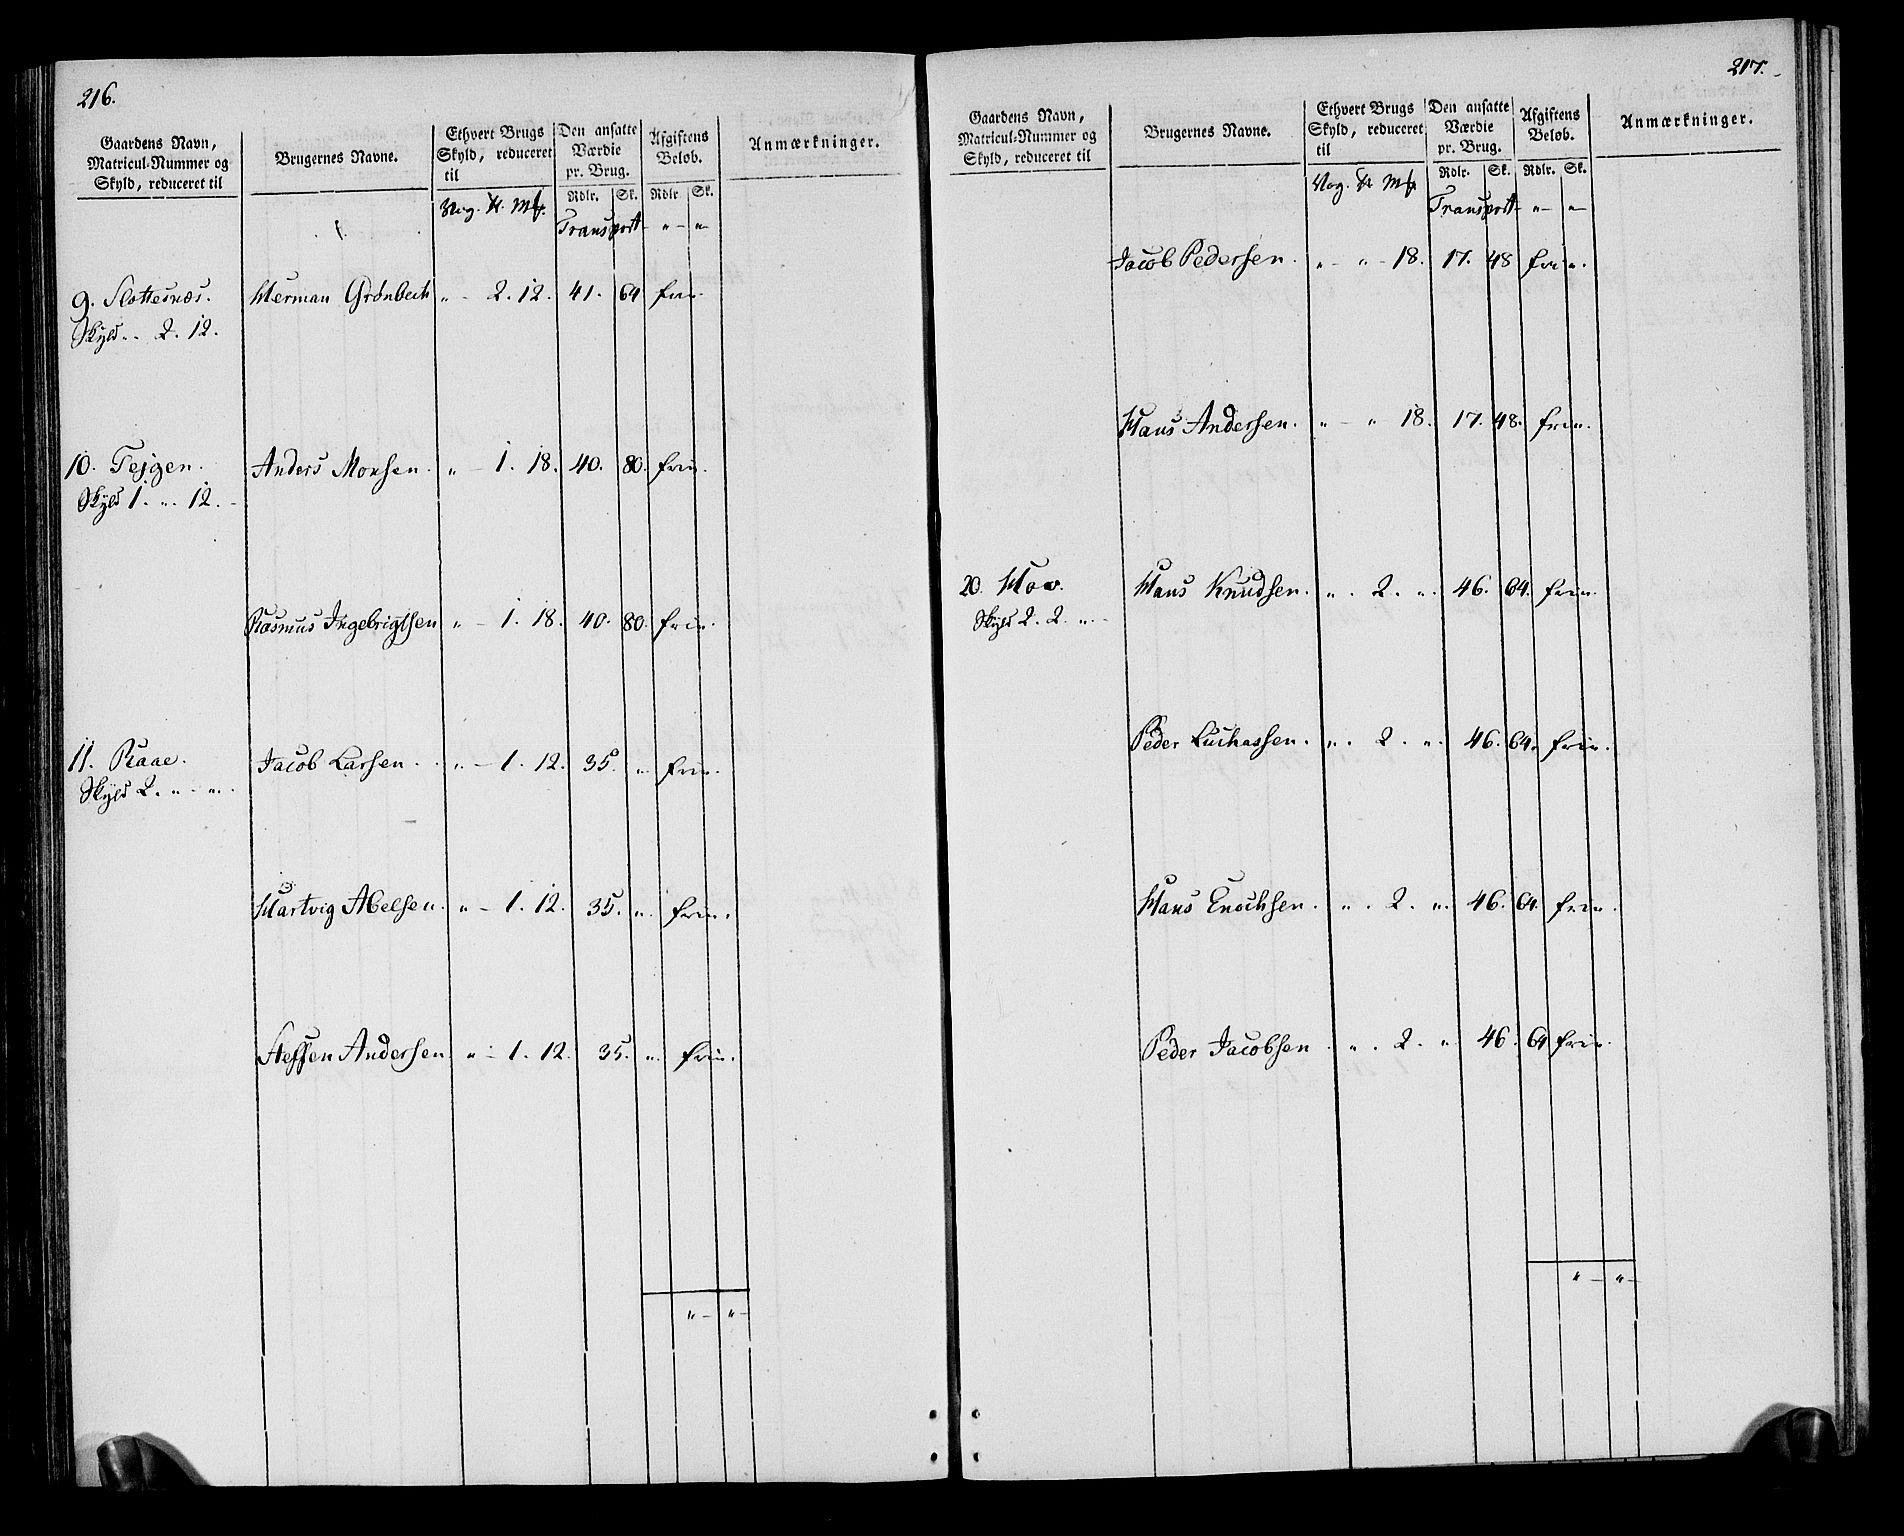 216.
Gaardens Navn, Matricul-Nummer og Skyld, reduceret til
Brugernes Navne.
Ethvert Brugs Skyld, reduceret til
Den ansatte Værdie pr. Brug.
Afgiftens Beløb.
Anmærkninger.
Rdlr. Sk. Rdlr Sk.
Vog. Mk.
Transport " — " —
9. Slottesnæs. Herman Grønbech " - 2. 12. 41. 64 frie.
Skyld . . 2. 12.
10. Tejgen. Anders Monsen. " - 1. 18. 40. 80. frie.
Skyld 1. " . 12. -
Rasmus Ingebrigtsen " - 1. 18. 40. 80. frie.
11. Raae. Jacob Larsen. . " - 1. 12. 35. " frie.
Skyld 2. " - " .
Hartvig Abelsen. " - 1. 12. 35. " . frie.
Steffen Andersen. " - 1. 12. 35. " . frie.
" — " —
217.
Gaardens Navn, Matricul-Nummer og Skyld, reduceret til
Brugernes Navne.
Ethvert Brugs Skyld, reduceret til
Den ansatte Værdie pr. Brug.
Afgiftens Beløb.
Anmærkninger.
Rdlr. Sk. Rdlr. Sk.
Vog. Mk
Transport " — " —
Jacob Pedersen. " - " - 18. 17. 48 frie.
Hans Andersen. " - " 18. 17. 48. frie.
20. Hov. Hans Knudsen. " . 2. " . 46. 64. frie.
Skyld 2. 2. " . -
Peder Luchassen. " . 2. " . 46. 64. frie.
Hans Enochsen. " . 2. " . 46. 64. frie.
Peder Jacobsen. " . 2. " 46. 64 frie.
" — " —